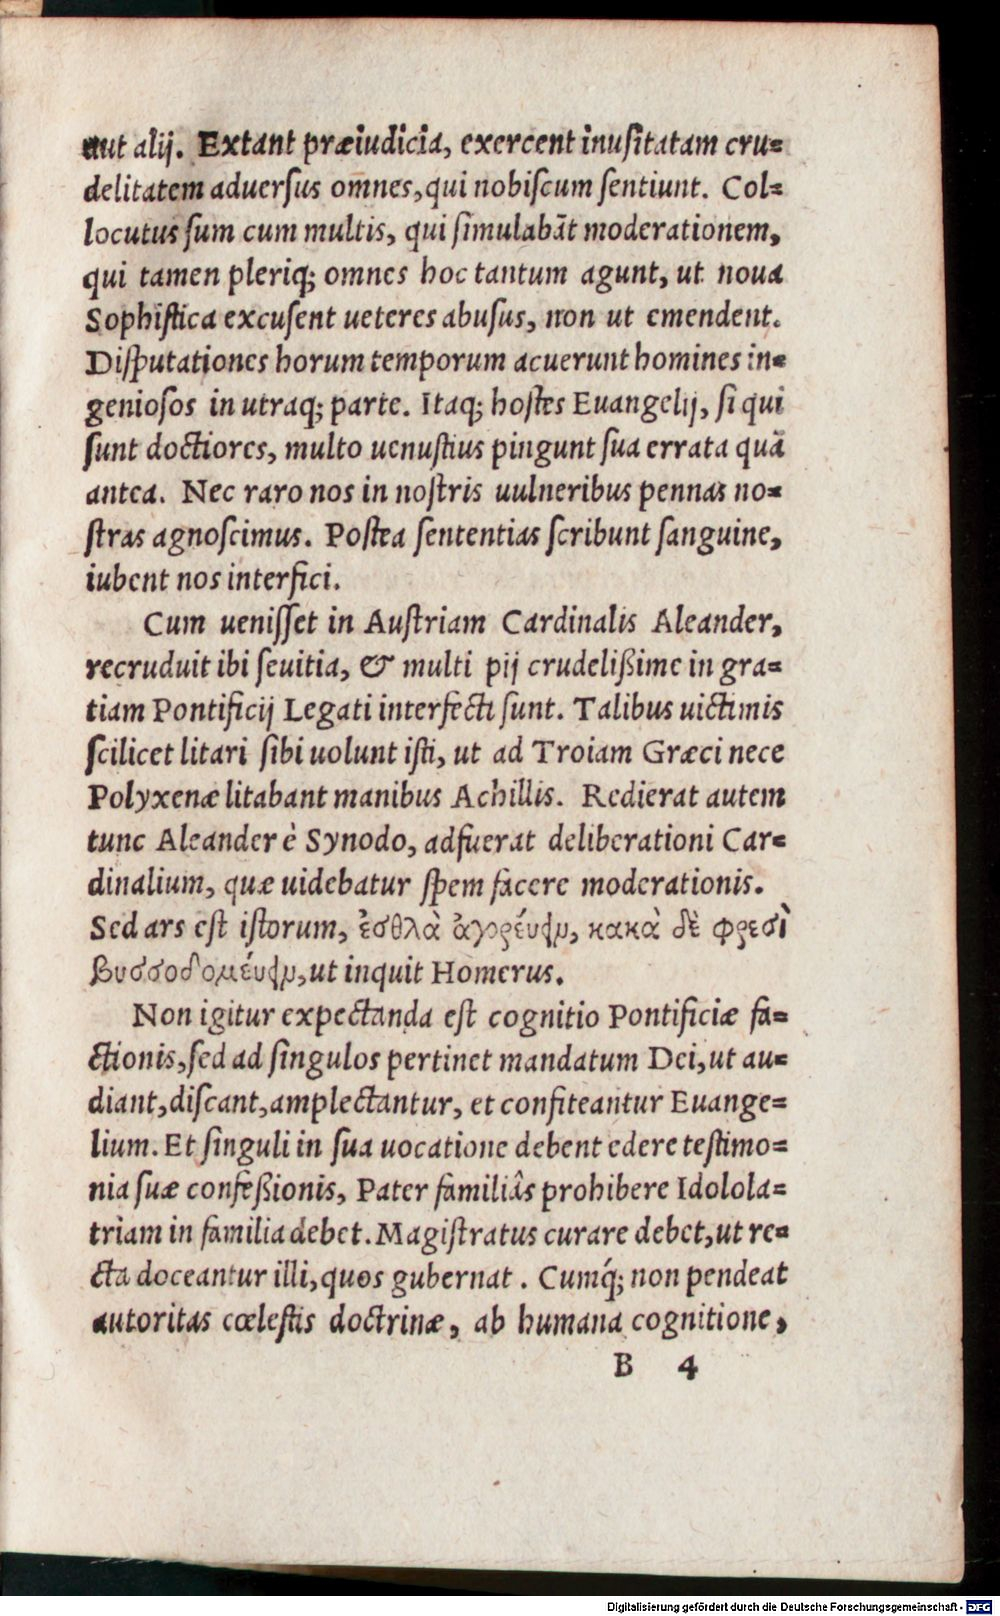 aut alij. Extant præiudicia, exercent inusitatam cru=
delitatem aduersus omnes, qui nobiscum sentiunt. Col=
locutus sum cum multis, qui simulabāt moderationem,
qui tamen pleriq; omnes hoc tantum agunt, ut noua
Sophistica excusent ueteres abusus, non ut emendent.
Disputationes horum temporum acuerunt homines in=
geniosos in utraq; parte. Itaq; hostes Euangelij, si qui
sunt doctiores, multo uenustius pingunt sua errata quā
antea. Nec raro nos in nostris uulneribus pennas no=
stras agnoscimus. Postea sententias scribunt sanguine,
iubent nos interfici.
Cum uenisset in Austriam Cardinalis Aleander,
recruduit ibi seuitia, & multi pij crudelißime in gra=
tiam Pontificij Legati interfecti sunt. Talibus uictimis
scilicet litari sibi uolunt isti, ut ad Troiam Græci nece
Polyxenæ litabant manibus Achillis. Redierat autem
tunc Aleander è Synodo, adfuerat deliberationi Car=
dinalium, quæ uidebatur spem facere moderationis.
Sed ars est istorum, ἐσθλὰ ἀγορέυειν, κακὰ δὲ φρεσὶ
βυσσοδομέυειν, ut inquit Homerus.
Non igitur expectanda est cognitio Pontificiæ fa=
ctionis, sed ad singulos pertinet mandatum Dei, ut au=
diant, discant, amplectantur, et confiteantur Euange=
lium. Et singuli in sua uocatione debent edere testimo=
nia suæ confeßionis, Pater familiâs prohibere Idolola=
triam in familia debet. Magistratus curare debet, ut re=
cta doceantur illi, quos gubernat. Cumq́; non pendeat
autoritas cœlestis doctrinæ, ab humana cognitione,
B 4
Digitalisierung gefördert durch die Deutsche Forschungsgemeinschaft - DFG